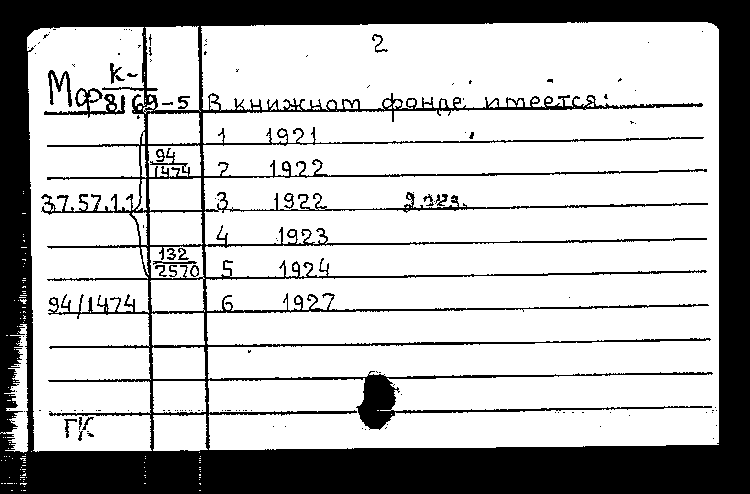 2
Мор К-1
8169-5 В книжном фонде имеется:
1 1921
94/1474 2 1922
37.57.1.1 3 1922 2 экз.
4 1923
132/2570 5 1924
94/1474 6 1927
ГК